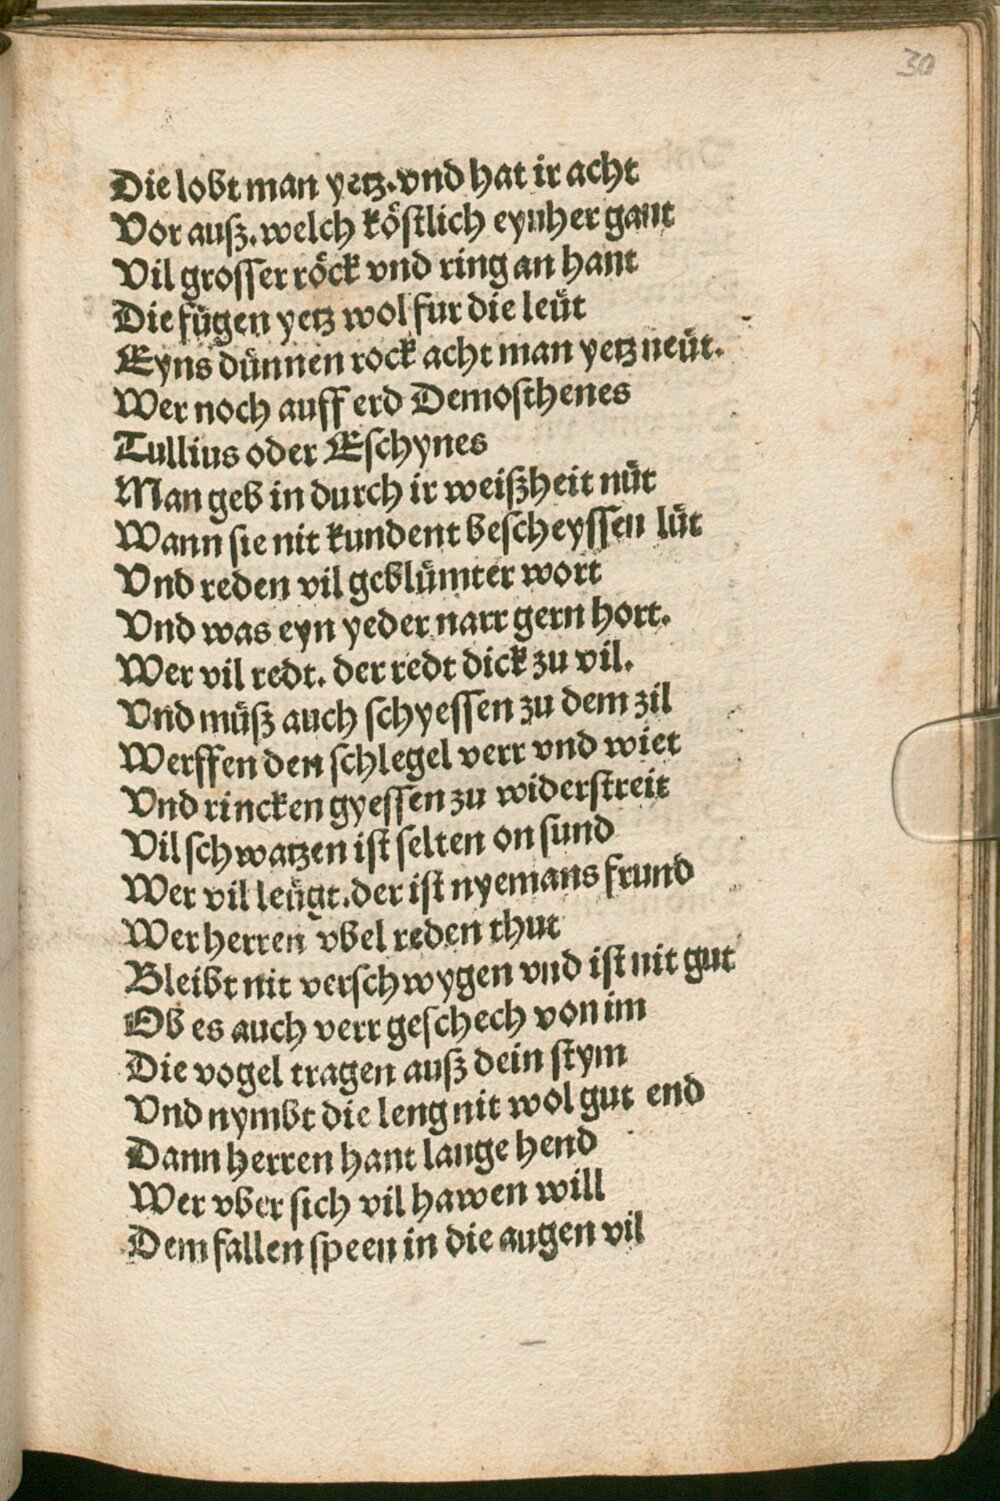 30
Die lobt man yetz. vnd hat ir acht
Vor auſz. welch köſtlich eynher gant
Vil groſſer röck vnd ring an hant
Die fügen yetz wol fur die leüt
Eyns dünnen rock acht man yetz neüt.
Wer noch auff erd Demoſthenes
Tullius oder Eſchynes
Man geb in durch ir weiſzheit nüt
Wann ſie nit kundent beſcheyſſen lüt
Vnd reden vil geblümter wort
Vnd was eyn yeder narr gern hort.
Wer vil redt. der redt dick zu vil.
Vnd müſz auch ſchyeſſen zu dem zil
Werffen den ſchlegel verr vnd wiet
Vnd rincken gyeſſen zu widerſtreit
Vil ſchwatzen iſt ſelten on ſund
Wer vil leügt. der iſt nyemans frund
Wer herren vbel reden thut
Bleibt nit verſchwygen vnd iſt nit gut
Ob es auch verr geſchech von im
Die vogel tragen auſz dein ſtym
Vnd nymbt die leng nit wol gut end
Dann herren hant lange hend
Wer vber ſich vil hawen will
Dem fallen ſpeen in die augen vil